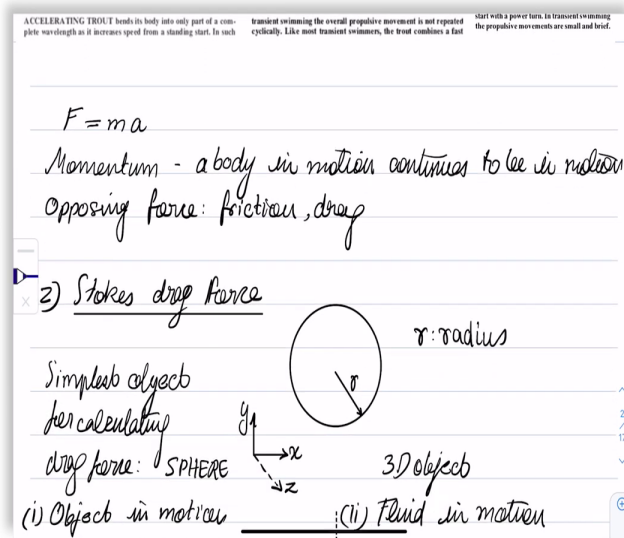 ACCELERATING TROUT bends its body into only part of a com-
plete wavelength as it increases speed from a standing start. In such
transient swimming the overall propulsive movement is not repeated
cyclically. Like most transient swimmers, the trout combines a fast
start with a power turn. In transient swimming
the propulsive movements are small and brief.
F = ma
Momentum - a body in motion continues to be in motion
Opposing force: friction, drag
2) Stokes drag force
r: radius
r
Simplest object
for calculating
drag force: SPHERE
y
x
z
3D object
(i) Object in motion
(ii) Fluid in motion
2